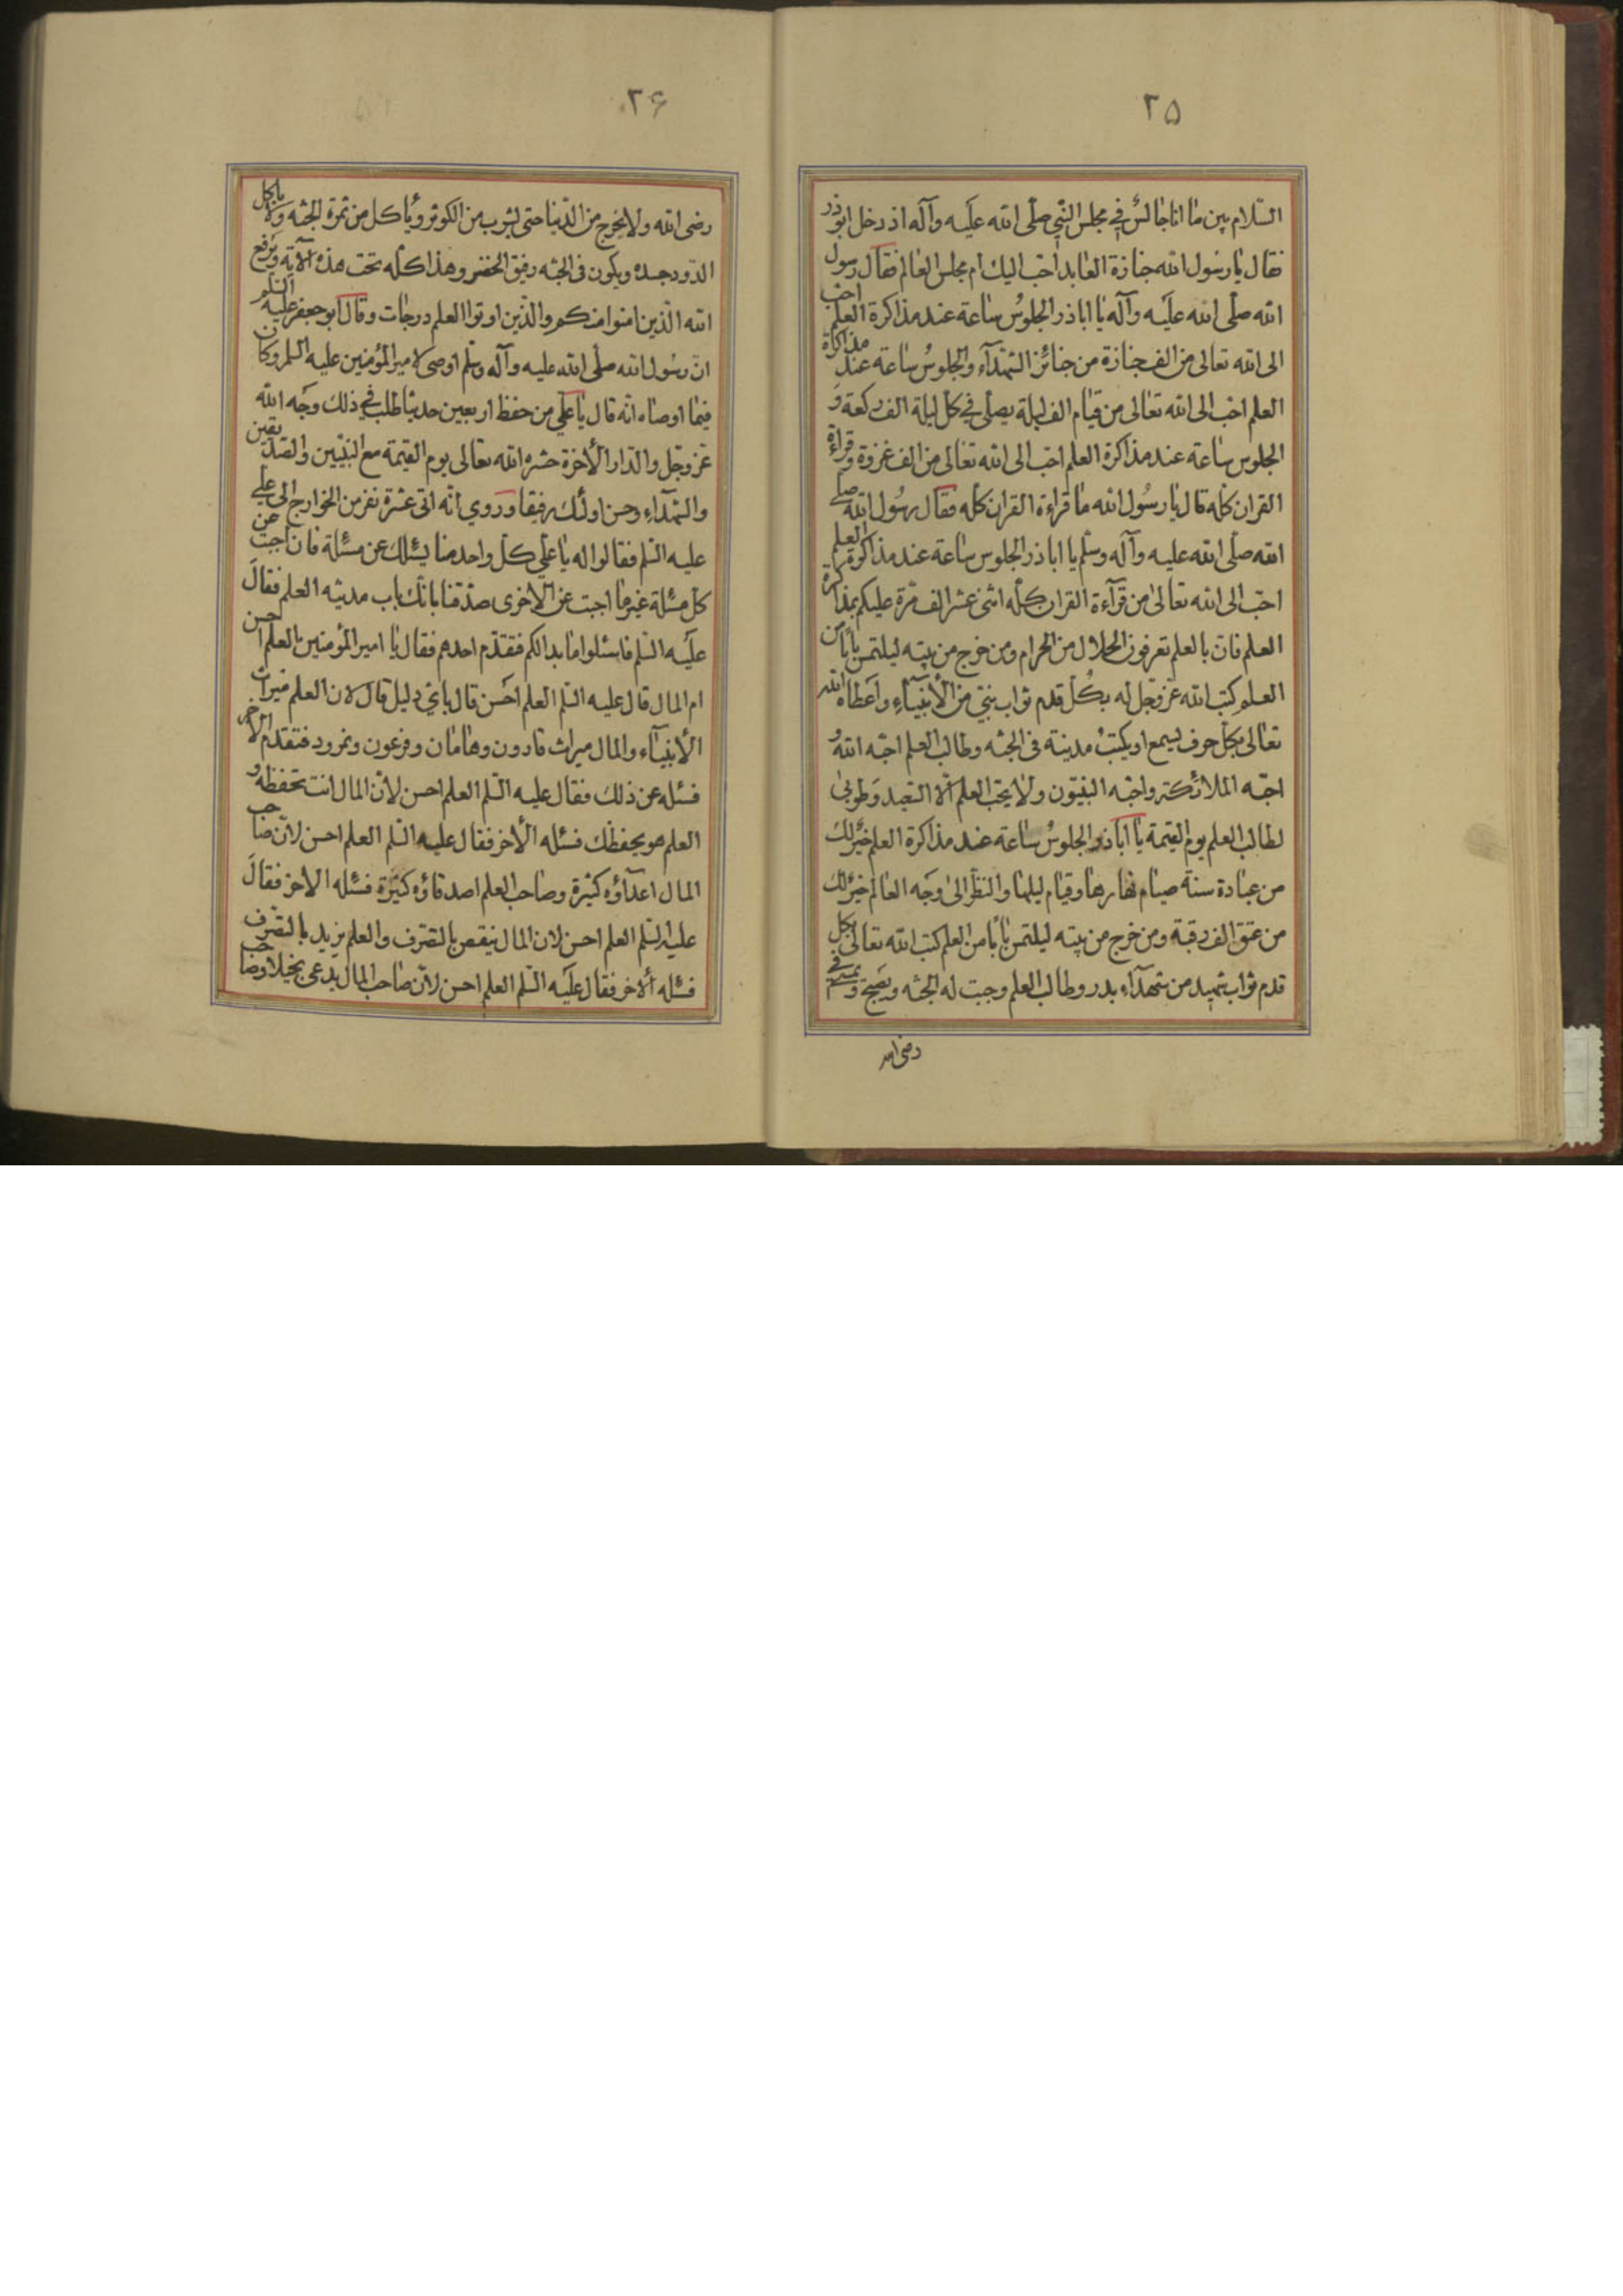 ٢۵
السّلام بين ما انا جالس في مجلس النّبي صلّى الله عليه وآله اذ دخل ابوذر
فقال يا رسول الله جنازة العابد احبّ اليك ام مجلس العالم فقال رسول
الله صلّى الله عليه وآله يا اباذر الجلوس ساعة عند مذاكرة العلم احبّ
الى الله تعالى من الف جنازة من جنائز الشّهدآء والجلوس ساعة عند مذاكرة
العلم احبّ الى الله تعالى من قيام الف ليلة يصلّى في كلّ ليلة الف ركعة و
الجلوس ساعة عند مذاكرة العلم احبّ الى الله تعالى من الف غزوة وقراءة
القران كلّه قال يا رسول الله ما قراءة القران كلّه فقال رسول الله صلى
الله صلّى الله عليه وآله وسلّم يا اباذر الجلوس ساعة عند مذاكرة العلم
احبّ الى الله تعالى من قرآءة القران كلّه اثنى عشر الف مرّة عليكم بمذاكرة
العلم فانّ بالعلم تعرفون الحلال من الحرام ومن خرج من بيته ليلتمس بابا من
العلم كتب الله عزّ وجلّ له بكلّ قدم ثواب نبيّ من الأنبيآء واعطاه الله
تعالى بكلّ حرف يسمع او يكتب مدينة فى الجنّه وطالب العلم احبّه الله و
احبّه الملائكة واحبّه النبيّون ولا يحبّ العلم الّا السّعيد وطوبى
لطالب العلم يوم القيمة يا اباذر الجلوس ساعة عند مذاكرة العلم خير لك
من عبادة سنة صيام نهارها وقيام ليلها والنّظر الى وجه العالم خير لك
من عتق الف رقبة ومن خرج من بيته ليلتمس بابا من العلم كتب الله تعالى بكل
قدم ثواب شهيد من شهدآء بدر وطالب العلم وجبت له الجنّه ويصبح ويمسي في
رضى الله
٢۶
رضى الله ولا يخرج من الدّنيا حتى يشرب من الكوثر ويأكل من ثمرة الجنّه ولا يأكل
الدّود جسده ويكون فى الجنّه رفيق الخضر وهذا كلّه تحت هذه الآية ويرفع
الله الّذين امنوا منكم والّذين اوتوا العلم درجات وقال ابو جعفر عليه السّلم
انّ رسول الله صلّى الله عليه وآله وسلّم اوصى لامير المؤمنين عليه السلم وكان
فيما اوصاه انّه قال يا علي من حفظ اربعين حديثا طلب في ذلك وجه الله
عزّ وجّل والدّار الأخرة حشره الله تعالى يوم القيمة مع النّبيّين والصدّيقين
والشّهدآء وحسن اولئك رفيقا وروي انّه اتى عشرة نفر من الخوارج الى علي
عليه السّلم فقالوا له يا علي كلّ واحد منا يسئلك عن مسئلة فان اجبت عن
كلّ مسئلة غير ما اجبت عن الاخرى صدّقنا بانّك باب مدينة العلم فقال
عليه السّلم فاسئلوا ما بدا لكم فتقدّم احدهم فقال يا امير المؤمنين العلم احسن
ام المال قال عليه السّلم العلم احسن قال بايّ دليل قال لان العلم ميراث
الأنبيآء والمال ميراث قارون وهامان وفرعون ونمرود فتقدّم الاخر
فسئله عن ذلك فقال عليه السّلم العلم احسن لأنّ المال انت تحفظه و
العلم هو يحفظك فسئله الأخر فقال عليه السّلم العلم احسن لانّ صاحب
المال اعدآؤه كثيرة وصاحب العلم اصدقاؤه كثيرة فسئله الاخر فقال
عليه السّلم العلم احسن لان المال ينقص بالتصرّف والعلم يزيد بالتصرّف
فسئله ألاخر فقال عليه السّلم العلم احسن لأنّ صاحب المال يدّعى بخيلا وصاحب